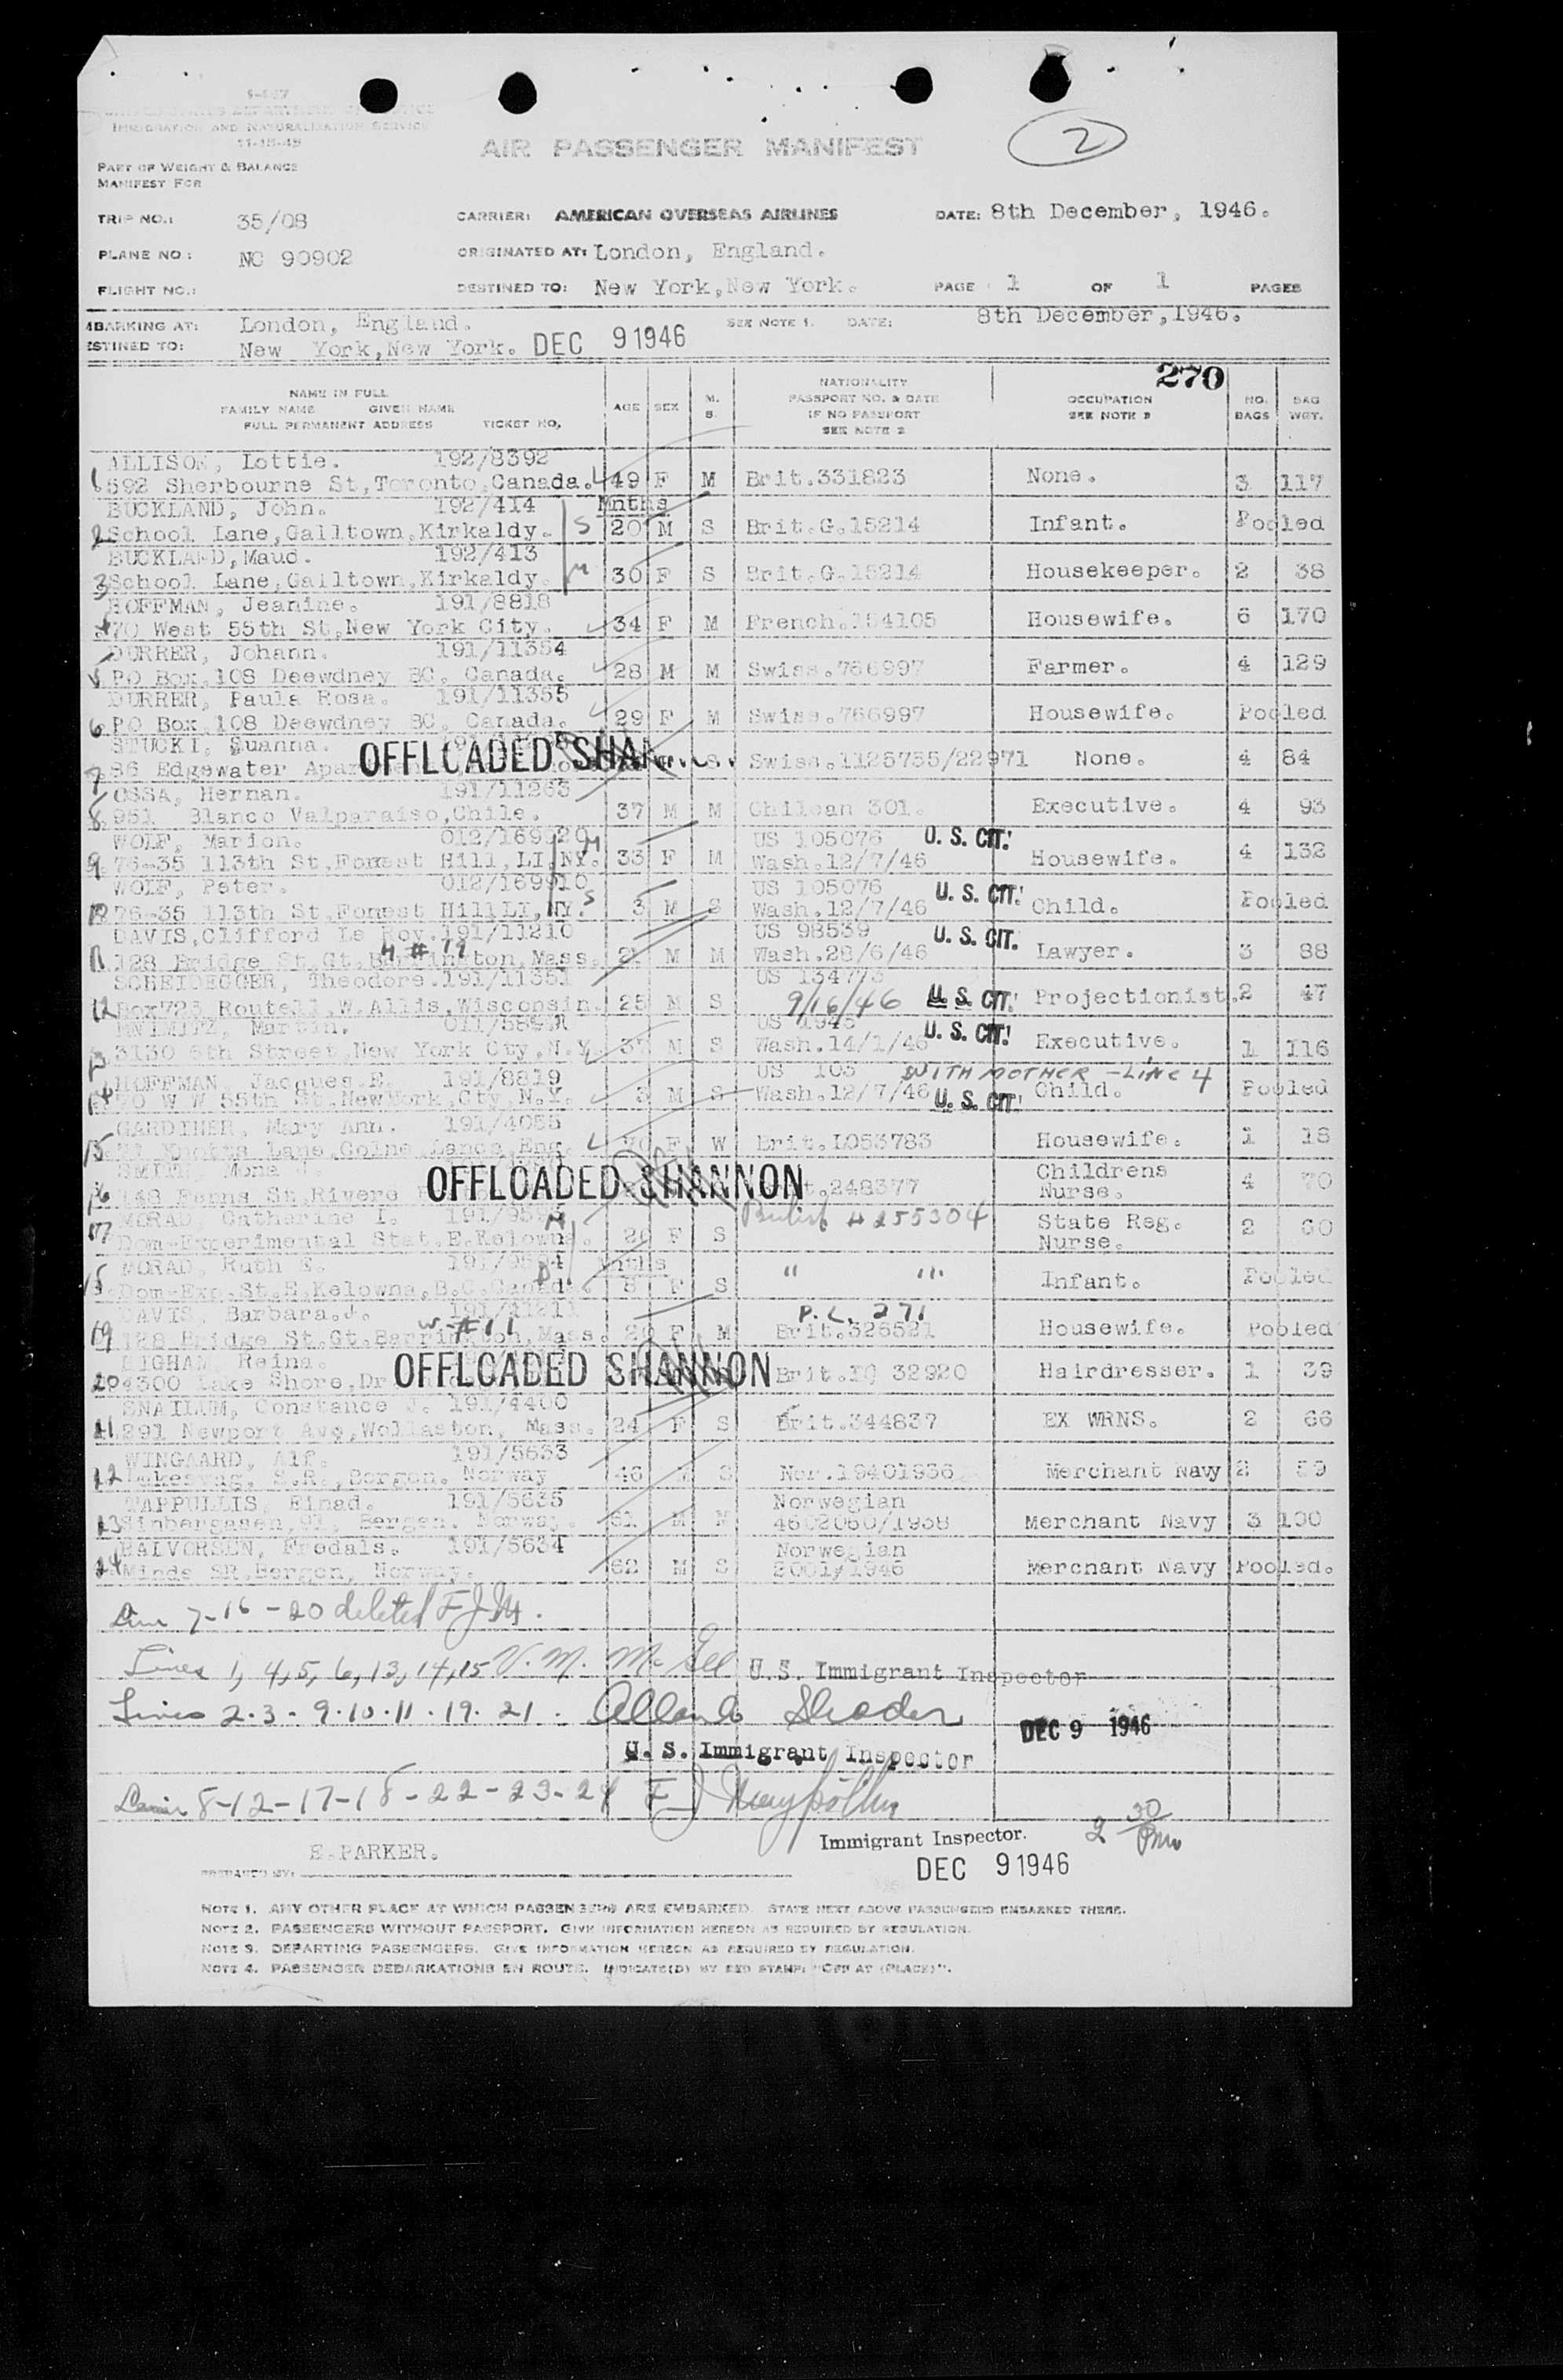 IMMIGRATION AND NATURALIZATION SERVICE
11-15-45
AIR PASSENGER MANIFEST
2
PART OF WEIGHT & BALANCE
MANIFEST FOR
TRIP NO.: 35/08 CARRIER: AMERICAN OVERSEAS AIRLINES DATE: 8th December, 1946.
PLANE NO.: NC 90902 ORIGINATED AT: London, England.
FLIGHT NO.: DESTINED TO: New York,New York. PAGE 1 OF 1 PAGES
MBARKING AT: London, England. SEE NOTE 1. DATE: 8th December,1946.
ESTINED TO: New York,New York. DEC 9 1946
270
NAME IN FULL
FAMILY NAME GIVEN NAME
FULL PERMANENT ADDRESS TICKET NO,
AGE SEX M. S.
NATIONALITY
PASSPORT NO. & DATE
IF NO PASSPORT
SEE NOTE 2
OCCUPATION
SEE NOTE 3
NO. BAGS
BAG WGT.
ALLISON, Lottie. 192/8392
1 592 Sherbourne St,Toronto,Canada. 49 F M Brit.331823 None. 3 117
BUCKLAND, John. 192/414 Mnths
2 School Lane,Galltown,Kirkaldy. S 20 M S Brit.G.15214 Infant. Pooled
BUCKLAND,Maud. 192/413
3 School Lane,Galltown,Kirkaldy. M 30 F S Brit.G.15214 Housekeeper. 2 38
HOFFMAN, Jeanine. 191/8818
4 70 West 55th St,New York City. 34 F M French.154105 Housewife. 6 170
DURRER, Johann. 191/11354
5 PO Box,108 Deewdney BC, Canada. 28 M M Swiss.766997 Farmer. 4 129
DURRER, Paula Rosa. 191/11355
6 PO Box 108 Deewdney BC, Canada. 29 F M Swiss.766997 Housewife. Pooled
STUCKI, Suanna.
7 86 Edgewater OFFLOADED SHAN S Swiss.1125735/22971 None. 4 84
OSSA, Hernan. 191/11263
8 951 Blanco Valparaiso,Chile. 37 M M Chilean 301. Executive. 4 93
WOLF, Marion. 012/169920 M US 105076 U. S. CIT.
9 76-35 113th St,Forest Hill,LI,NY. 33 F M Wash.12/7/46 Housewife. 4 132
WOLF, Peter. 012/169910 S US 105076 U. S. CIT.
10 76-35 113th St,Forest HillLI,NY. 3 M S Wash.12/7/46 Child. Pooled
DAVIS,Clifford Le Roy.191/11210 US 98539 U. S. CIT.
11 128 Bridge St.Gt.Barrington,Mass. M M Wash.28/6/46 Lawyer. 3 88
SCHEIDEGGER, Theodore.191/11351 US 134773
12 Box725 Route11,W.Allis,Wisconsin. 25 M S 9/16/46 U. S. CIT. Projectionist. 2 47
Martin. U. S. CIT.
13 3130 6th Street,New York Cty,N.Y. 37 M S Wash.14/1/46 Executive. 1 116
HOFFMAN, Jacques.E. 191/8819 US 103 WITH MOTHER - LINE 4
14 70 W W 55th St.NewYork,Cty,N.Y. 3 M S Wash.12/7/46 U. S. CIT. Child. Pooled
GARDINER, Mary Ann. 191/4055
15 Lane,Colne,Lancs,Eng. 70 F W Brit.L053783 Housewife. 1 18
SMITH, Mona Childrens
16 OFFLOADED SHANNON 248377 Nurse. 4 70
MORAD, Catherine I. 191/9593 M British # 255304 State Reg.
17 Dom-Experimental Stat.E.Kelowna. 26 F S Nurse. 2 60
MORAD, Ruth E. 191/9594 Mnths
18 Dom-Exp.St.E.Kelowna,B.C.Canada. 8 F S " " Infant. Pooled
DAVIS, Barbara.J. 191/11211 P.L. 271
W. #11
19 128 Bridge St.Gt.Barrington,Mass. 20 F M Brit.326521 Housewife. Pooled
BIGHAM, Reina.
20 4300 Lake Shore,Dr OFFLOADED SHANNON Brit.LO 32920 Hairdresser. 1 39
SNAILUM, Constance J. 191/4400
21 291 Newport Ave,Wollaston, Mass. 24 F S Brit.344837 EX WRNS. 2 66
WINGAARD, Alf. 191/5633
22 Bergen. Norway 46 M S Nor.19401936 Merchant Navy 2 59
TAPPULLIS, Einad. 191/5635 Norwegian
23 Bergen. Norway. 31 M M 4602060/1938 Merchant Navy 3 100
HALVORSEN, Fredals. 191/5634 Norwegian
24 Minde SR.Bergen, Norway. 62 M S 2001/1946 Merchant Navy Pooled.
Line 7-16-20 deleted FJM.
Lines 1, 4, 5, 6, 13, 14, 15 V. M. McGee U.S. Immigrant Inspector
Lines 2.3-9.10.11.19.21. DEC 9 1946
U. S. Immigrant Inspector
Lines 8-12-17-18-22-23-24
Immigrant Inspector. 2 30 Pm
E.PARKER. DEC 9 1946
PREPARED BY:
NOTE 1. ANY OTHER PLACE AT WHICH PASSENGERS ARE EMBARKED. STATE NEXT ABOVE PASSENGERS EMBARKED THERE.
NOTE 2. PASSENGERS WITHOUT PASSPORT. GIVE INFORMATION HEREON AS REQUIRED BY REGULATION.
NOTE 3. DEPARTING PASSENGERS. GIVE INFORMATION HEREON AS REQUIRED BY REGULATION.
NOTE 4. PASSENGER DEBARKATIONS EN ROUTE. INDICATE(D) BY RED STAMP: "OFF AT (PLACE)".